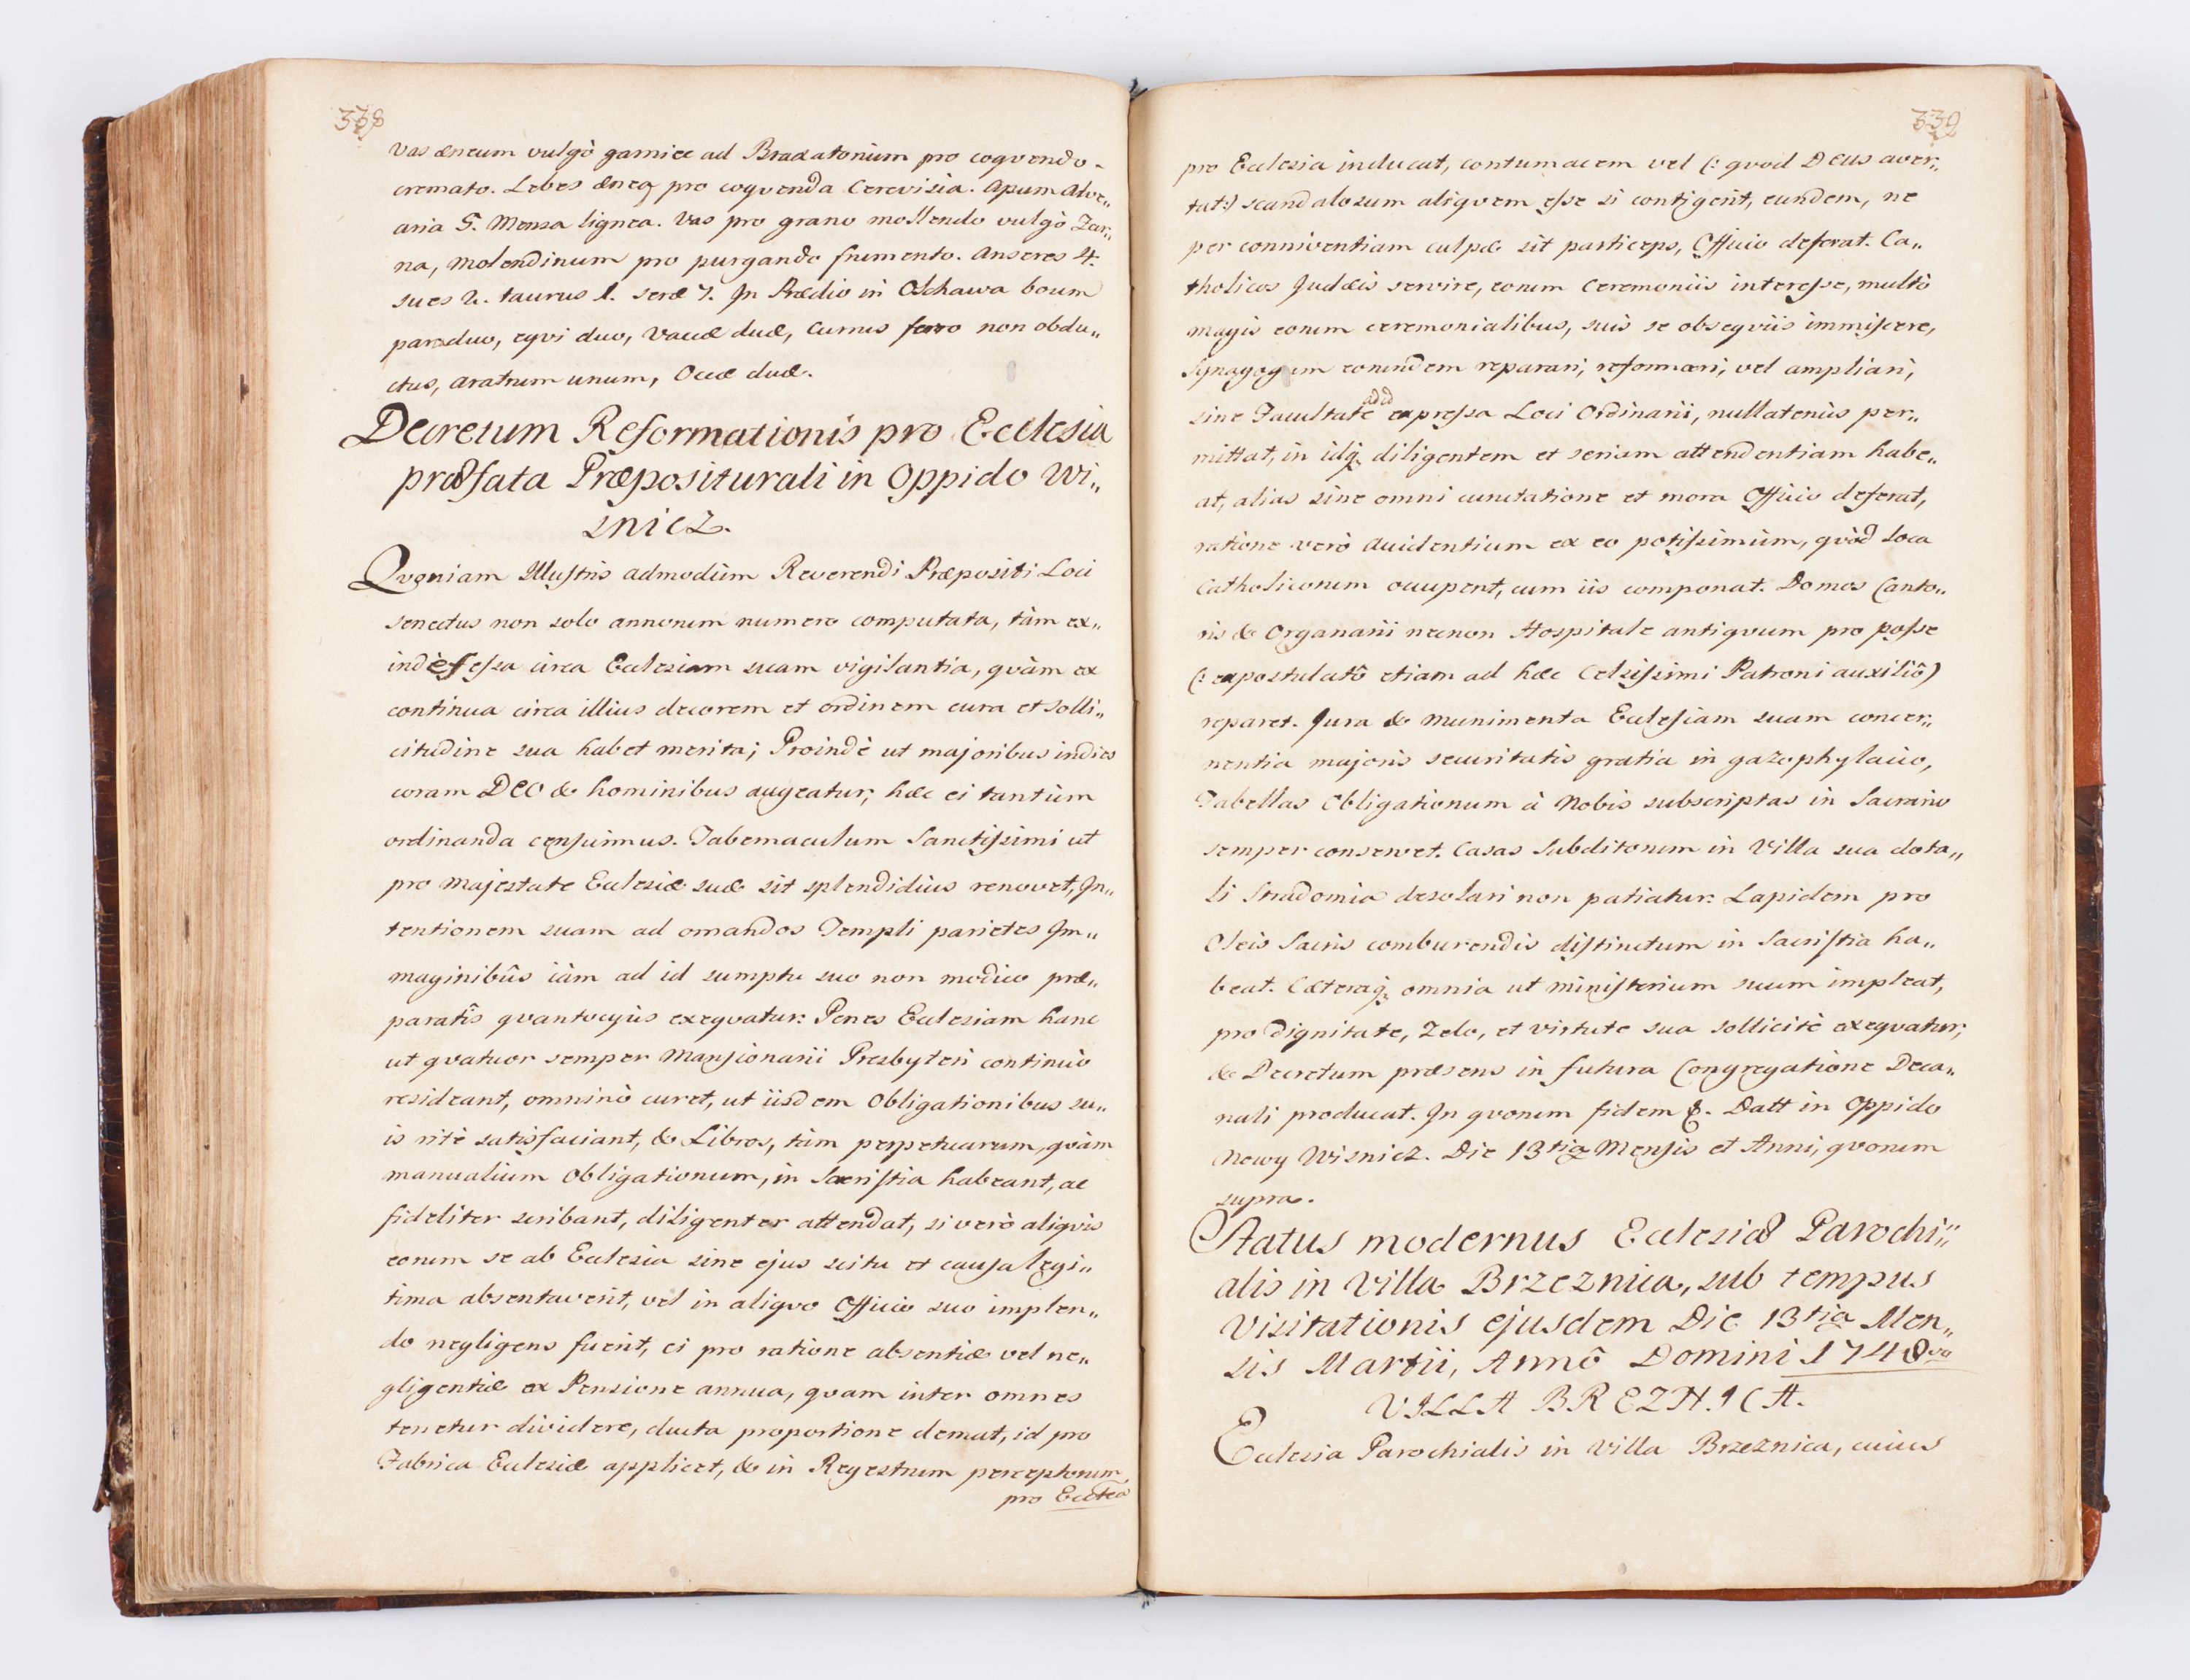 338
Vas æneum vulgò garniec ad Braxatorium pro coqvendo
cremato. Lebes æneq pro coqvenda Cerevisia. Apum Alve„
aria 5. Mensa lignea. Vas pro grano mollendo vulgò Żar„
na, Molendinum pro purgando frumento. Anseres 4.
sues 2. taurus 1. seræ 7. In Prædio in Olchawa boum
para duo, eqvi duo, Vaccæ duæ, Currus ferro non obdu„
ctus, Aratrum unum, Occæ duæ.
Decretum Reformationis pro Ecclesia
præfata Præpositurali in Oppido Wi„
snicz.
Qvoniam Illustris admodùm Reverendi Præpositi Loci
senectus non solo annorum numero computata, tàm ex„
indefessa circa Ecclesiam suam vigilantia, qvàm ex
continua circa illius decorem et ordinem cura et solli„
citudine sua habet merita; Proindè ut majoribus indies
coram DEO & hominibus augeatur, hæc ei tantùm
ordinanda censuimus. Tabernaculum Sanctissimi ut
pro Majestate Ecclesiæ suæ sit splendidius renovet, In„
tentionem suam ad ornandos Templi parietes Im„
maginibûs iàm ad id sumptu suo non modico præ„
paratîs qvantocyùs exeqvatur. Penes Ecclesiam hanc
ut qvatuor semper Mansionarii Presbyteri continuò
resideant, omninò curet, ut iisdem Obligationibus su„
is ritè satisfaciant, & Libros, tàm perpetuarum, qvàm
manualium Obligationum, in Sacristia habeant, ac
fideliter scribant, diligenter attendat, si verò aliqvis
eorum se ab Ecclesia sine ejus scitu et causa legi„
tima absentaverit, vel in aliqvo Officio suo implen„
do negligens fuerit, ei pro ratione absentiæ vel ne„
gligentiæ ex Pensione annua, qvam inter omnes
tenetur dividere, ducta proportione demat, id pro
Fabrica Ecclesiæ applicet, & in Regestrum perceptorum
pro Ecclea
339
pro Ecclesia inducat, contumacem vel (: qvod DEUS aver„
tat:) scandalosum aliqvem esse si contigerit, eundem, ne
per conniventiam culpæ sit particeps, Officio deferat. Ca„
tholicos Judæis servire, eorum Ceremoniis interesse, multò
magis eorum ceremonialibus, suis se obseqviis immiscere,
Synagogam eorundem reparari, reformari, vel ampliari,
sine Facultate adid expressa Loci Ordinarii, nullatenùs per„
mittat, in idq; diligentem et seriam attendentiam habe„
at, alias sine omni cunctatione et mora Officio deferat,
ratione verò Accidentium ex eo potissimùm, qvòd Loca
Catholicorum occupent, cum iis componat. Domos Canto„
ris & Organarii necnon Hospitale antiqvum pro posse
(: expostulatô etiam ad hæc Celsissimi Patroni auxiliô)
reparet. Jura & Munimenta Ecclesiam suam concer„
nentia majoris securitatis gratia in gazophylacio,
Tabellas Obligationum à Nobis subscriptas in Sacrario
semper conservet. Casas Subditorum in Villa sua dota„
li Stradomia desolari non patiatur. Lapidem pro
Oleis Sacris comburendis distinctum in Sacristia ha„
beat. Cæteraq; omnia ut Ministerium suum impleat,
pro dignitate, Zelo, et virtute sua sollicitè exeqvatur,
& Decretum præsens in futura Congregatione Deca„
nali producat. In qvorum fidem &. Datt in Oppido
Nowy Wisnicz. Die 13tia Mensis et Anni, qvorum
supra.
Status modernus Ecclesiæ Parochi„
alis in Villa Brzeznica, sub tempus
Visitationis ejusdem Die 13tia Men„
sis Martii, Annô Domini 1748vo
VILLA BREZNICA.
Ecclesia Parochialis in Villa Brzeznica, cuius